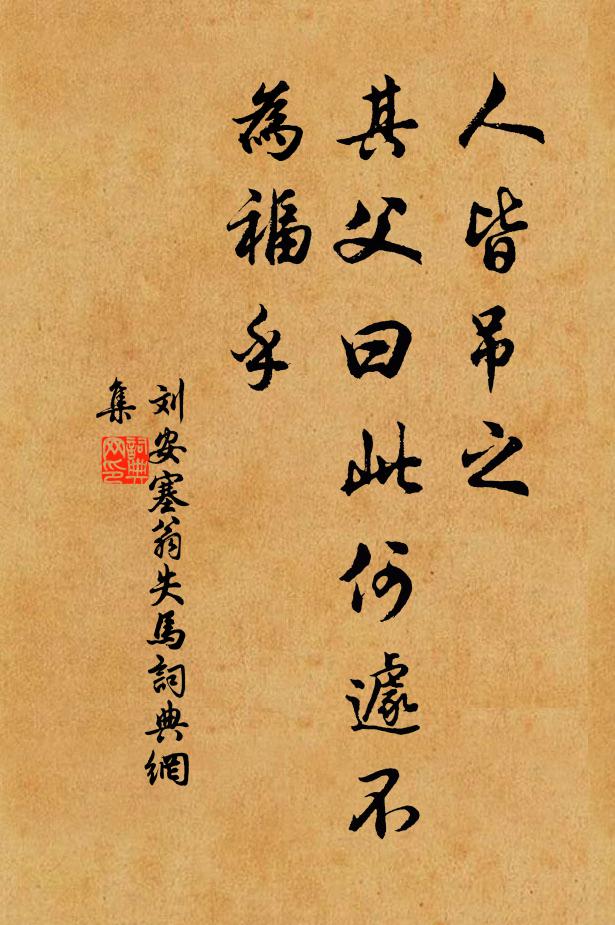 人皆吊之
其父曰此何遽不
為福乎
刘安塞翁失馬詞典網
集
詞典
网印